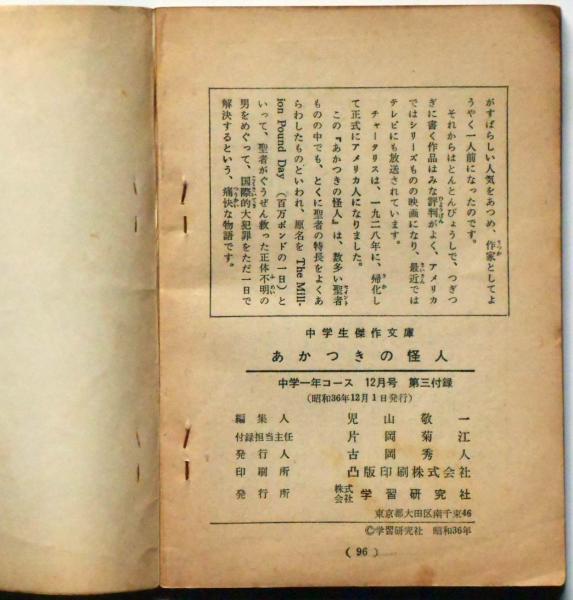 がすばらしい人気をあつめ、作家としてよ
うやく一人前になったのです。
それからはとんとんびょうしで、つぎつ
ぎに書く作品はみな評判がよく、アメリカ
ではシリーズものの映画になり、最近では
テレビにも放送されています。
チャータリスは、一九二八年に、帰化し
て正式にアメリカ人になりました。
この『あかつきの怪人』は、数多い聖者
ものの中でも、とくに聖者の特長をよくあ
らわしたものといわれ、原名を The Mill-
ion Pound Day （百万ポンドの一日）と
いって、聖者がぐうぜん救った正体不明の
男をめぐって、国際的大犯罪をただ一日で
解決するという、痛快な物語です。
中学生傑作文庫
あかつきの怪人
中学一年コース 12月号 第三付録
（昭和36年12月1日発行）
編集人 児山敬一
付録担当主任 片岡菊江
発行人 古岡秀人
印刷所 凸版印刷株式会社
発行所 株式会社 学習研究社
東京都大田区南千束46
©学習研究社 昭和36年
（96）